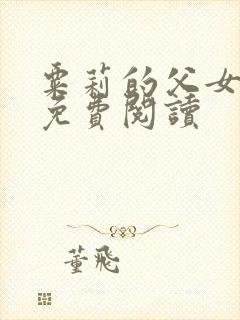 粟莉的父女
免費閱讀
董飛